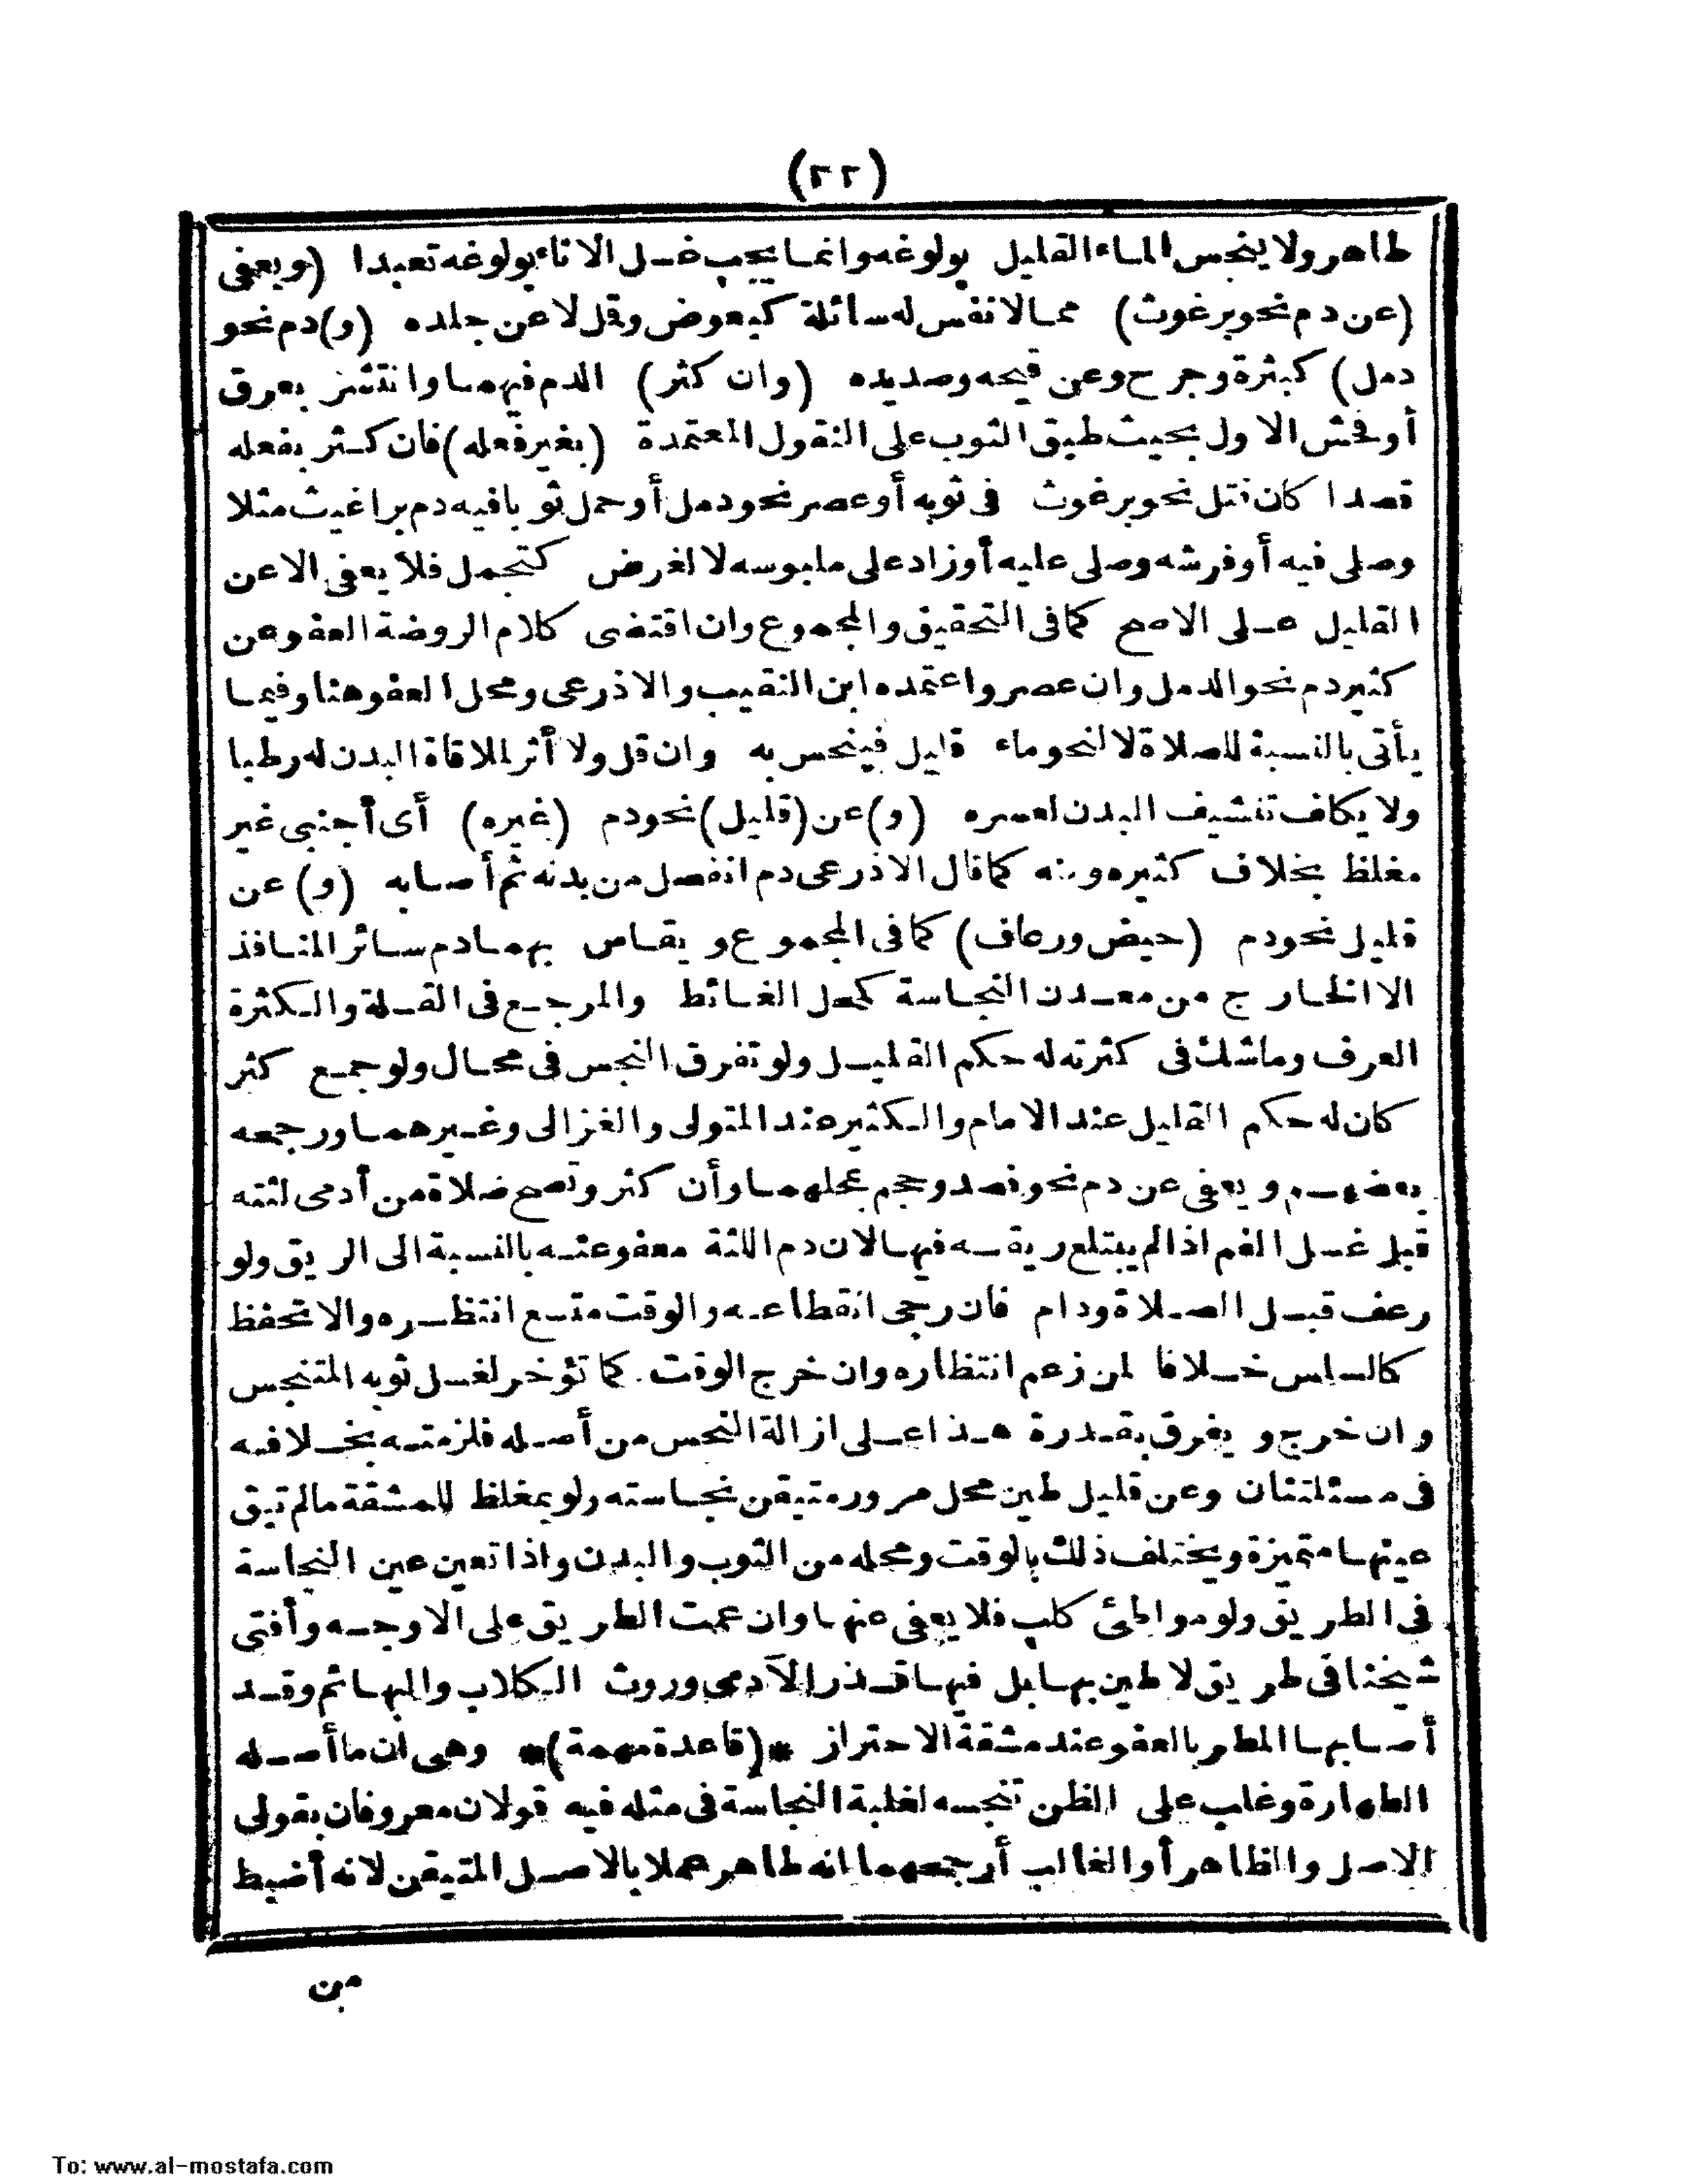 (٢٢)
طاهر ولا ينجس الماء القليل بولوغه وانما يجب غسل الاناء بولوغه تعبدا (ويعفى
(عن دم نحو برغوث) مما لا نفس له سائلة كبعوض وقمل لا عن جلده (و) دم نحو
دمل) كبثرة وجرح وعن قيحه وصديده (وان كثر) الدم فيهما وانتشر بعرق
أو فحش الاول بحيث طبق الثوب على النقول المعتمدة (بغير فعله) فان كثر بفعله
قصدا كان قتل نحو برغوث فى ثوبه أو عصر نحو دمل أو حمل ثوبا فيه دم براغيث مثلا
وصلى فيه أو فرشه وصلى عليه أو زاد على ملبوسه لا لغرض كتجمل فلا يعفى الا عن
القليل على الاصح كما فى التحقيق والمجموع وان اقتضى كلام الروضة العفو عن
كثير دم نحو الدمل وان عصر واعتمده ابن النقيب والاذرعى ومحل العفو هنا وفيما
يأتى بالنسبة للصلاة لا لنحو ماء قليل فينجس به وان قل ولا أثر لملاقاة البدن له رطبا
ولا يكلف تنشيف البدن لعسره (و) عن (قليل) نحو دم (غيره) أى أجنبى غير
مغلظ بخلاف كثيره ومنه كما قال الاذرعى دم انفصل من بدنه ثم أصابه (و) عن
قليل نحو دم (حيض ورعاف) كما فى المجموع ويقاس بهما دم سائر المنافذ
الا الخارج من معدن النجاسة كمحل الغائط والمرجع فى القلة والكثرة
العرف وما شك فى كثرته له حكم القليل ولو تفرق النجس فى محال ولو جمع كثر
كان له حكم القليل عند الامام والكثير عند المتولى والغزالى وغيرهما ورجحه
بعضهم ويعفى عن دم نحو فصد وحجم بمحلهما وأن كثر وتصح صلاة من أدمى لثته
قبل غسل الفم اذا لم يبتلع ريقه فيها لان دم اللثة معفو عنه بالنسبة الى الريق ولو
رعف قبل الصلاة ودام فان رجى انقطاعه والوقت متسع انتظره والا تحفظ
كالسلس خلافا لمن زعم انتظاره وان خرج الوقت. كما تؤخر لغسل ثوبه المتنجس
وان خرج ويفرق بقدرة هذا على ازالة النجس من أصله فلزمته بخلافه
فى مسئلتنا وعن قليل طين محل مرور متيقن نجاسته ولو بمغلظ للمشقة مالم تبق
عينها متميزة ويختلف ذلك بالوقت ومحله من الثوب والبدن واذا تعين عين النجاسة
فى الطريق ولو مواطئ كلب فلا يعفى عنها وان عمت الطريق على الاوجه وأفتى
شيخنا فى طريق لا طين بها بل فيها قذر الآدمى وروث الكلاب والبهائم وقد
أصابها المطر بالعفو عند مشقة الاحتراز *(قاعدة مهمة)* وهى ان ما أصله
الطهارة وغلب على الظن تنجسه لغلبة النجاسة فى مثله فيه قولان معروفان بقولى
الاصل والظاهر أو الغالب أرجحهما انه طاهر عملا بالاصل المتيقن لانه أضبط
من
To: www.al-mostafa.com